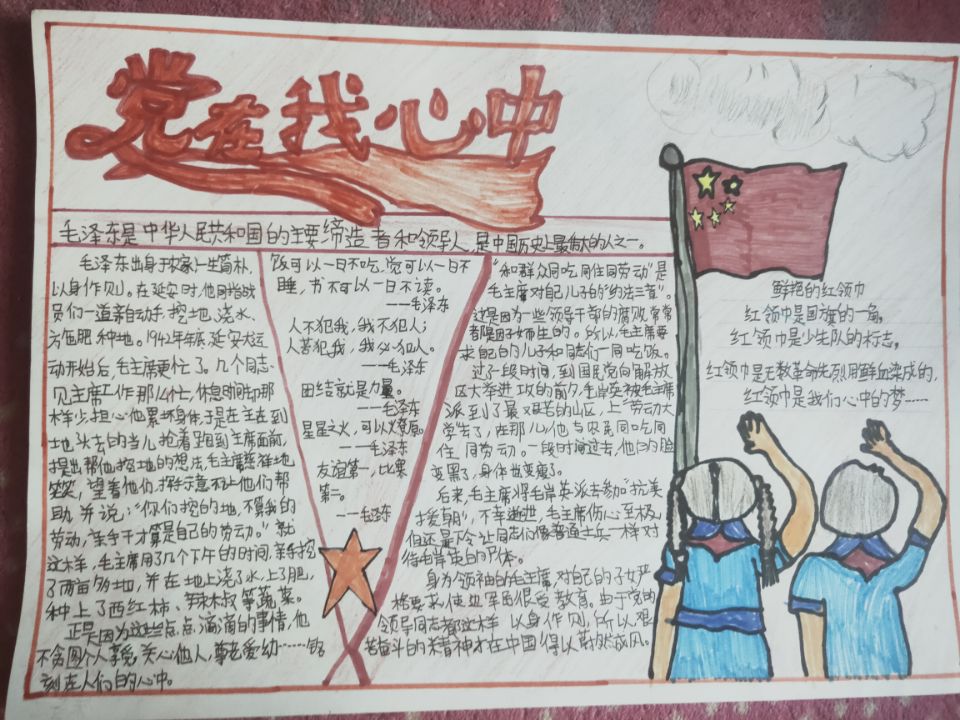 党在我心中
毛泽东是中华人民共和国的主要缔造者和领导人,是中国历史上最伟大的人之一。
毛泽东出身于农家,一生简朴,
以身作则。在延安时,他同当战
员们一道亲自动手,挖地、浇水、
施肥种地。1942年年底,延安大运
动开始后,毛主席更忙了。几个同志
见主席工作那么忙,休息时间那
样少,担心他累坏身体,于是在主在到
地头去的当儿拉着跑到主席面前,
提出帮他挖地的想法,毛主席慈祥地
笑笑,望着他们,挥手示意不让他们帮
助,并说:“你们挖的地,不算我的
劳动,亲手干才算是自己的劳动。”就
这样,毛主席用了几个下午的时间,亲手挖
了两亩多地,并在地上浇了水,上了肥,
种上了西红柿、辣椒等蔬菜。
正是因为这些点点滴滴的事情,他
不贪图个人享受,关心他人,尊老爱幼……铭
刻在人们的心中。
饭可以一日不吃,觉可以一日不
睡,书不可以一日不读。
——毛泽东
人不犯我,我不犯人;
人若犯我,我必犯人。
——毛泽东
团结就是力量。
——毛泽东
星星之火,可以燎原。
——毛泽东
友谊第一,比赛
第二。
——毛泽东
“和群众同吃同住同劳动”是
毛主席对自己儿子的“约法三章”。
这是因为一些领导干部的腐败,常常
都是因子女而生的。所以,毛主席要
求自己的儿子和同志们一同吃饭。
过了一段时间,到国民党向解放
区大举进攻的前夕,毛岸英被毛主席
派到了最艰苦的山区,上“劳动大
学”去了,在那儿,他与农民同吃同
住同劳动。一段时间过去,他的脸
变黑了,身体也变瘦了。
后来,毛主席将毛岸英派去参加“抗美
援朝”,不幸逝世,毛主席伤心至极,
但还是下令让同志们像普通士兵一样对
待毛岸英的尸体。
身为领袖的毛主席,对自己的子女严
格要求,使边军因很受教育。由于党的
领导同志都这样以身作则,所以艰
苦奋斗的精神才在中国得以蔚然成风。
鲜艳的红领巾
红领巾是国旗的一角,
红领巾是少先队的标志。
红领巾是无数革命先烈用鲜血染成的,
红领巾是我们心中的梦……